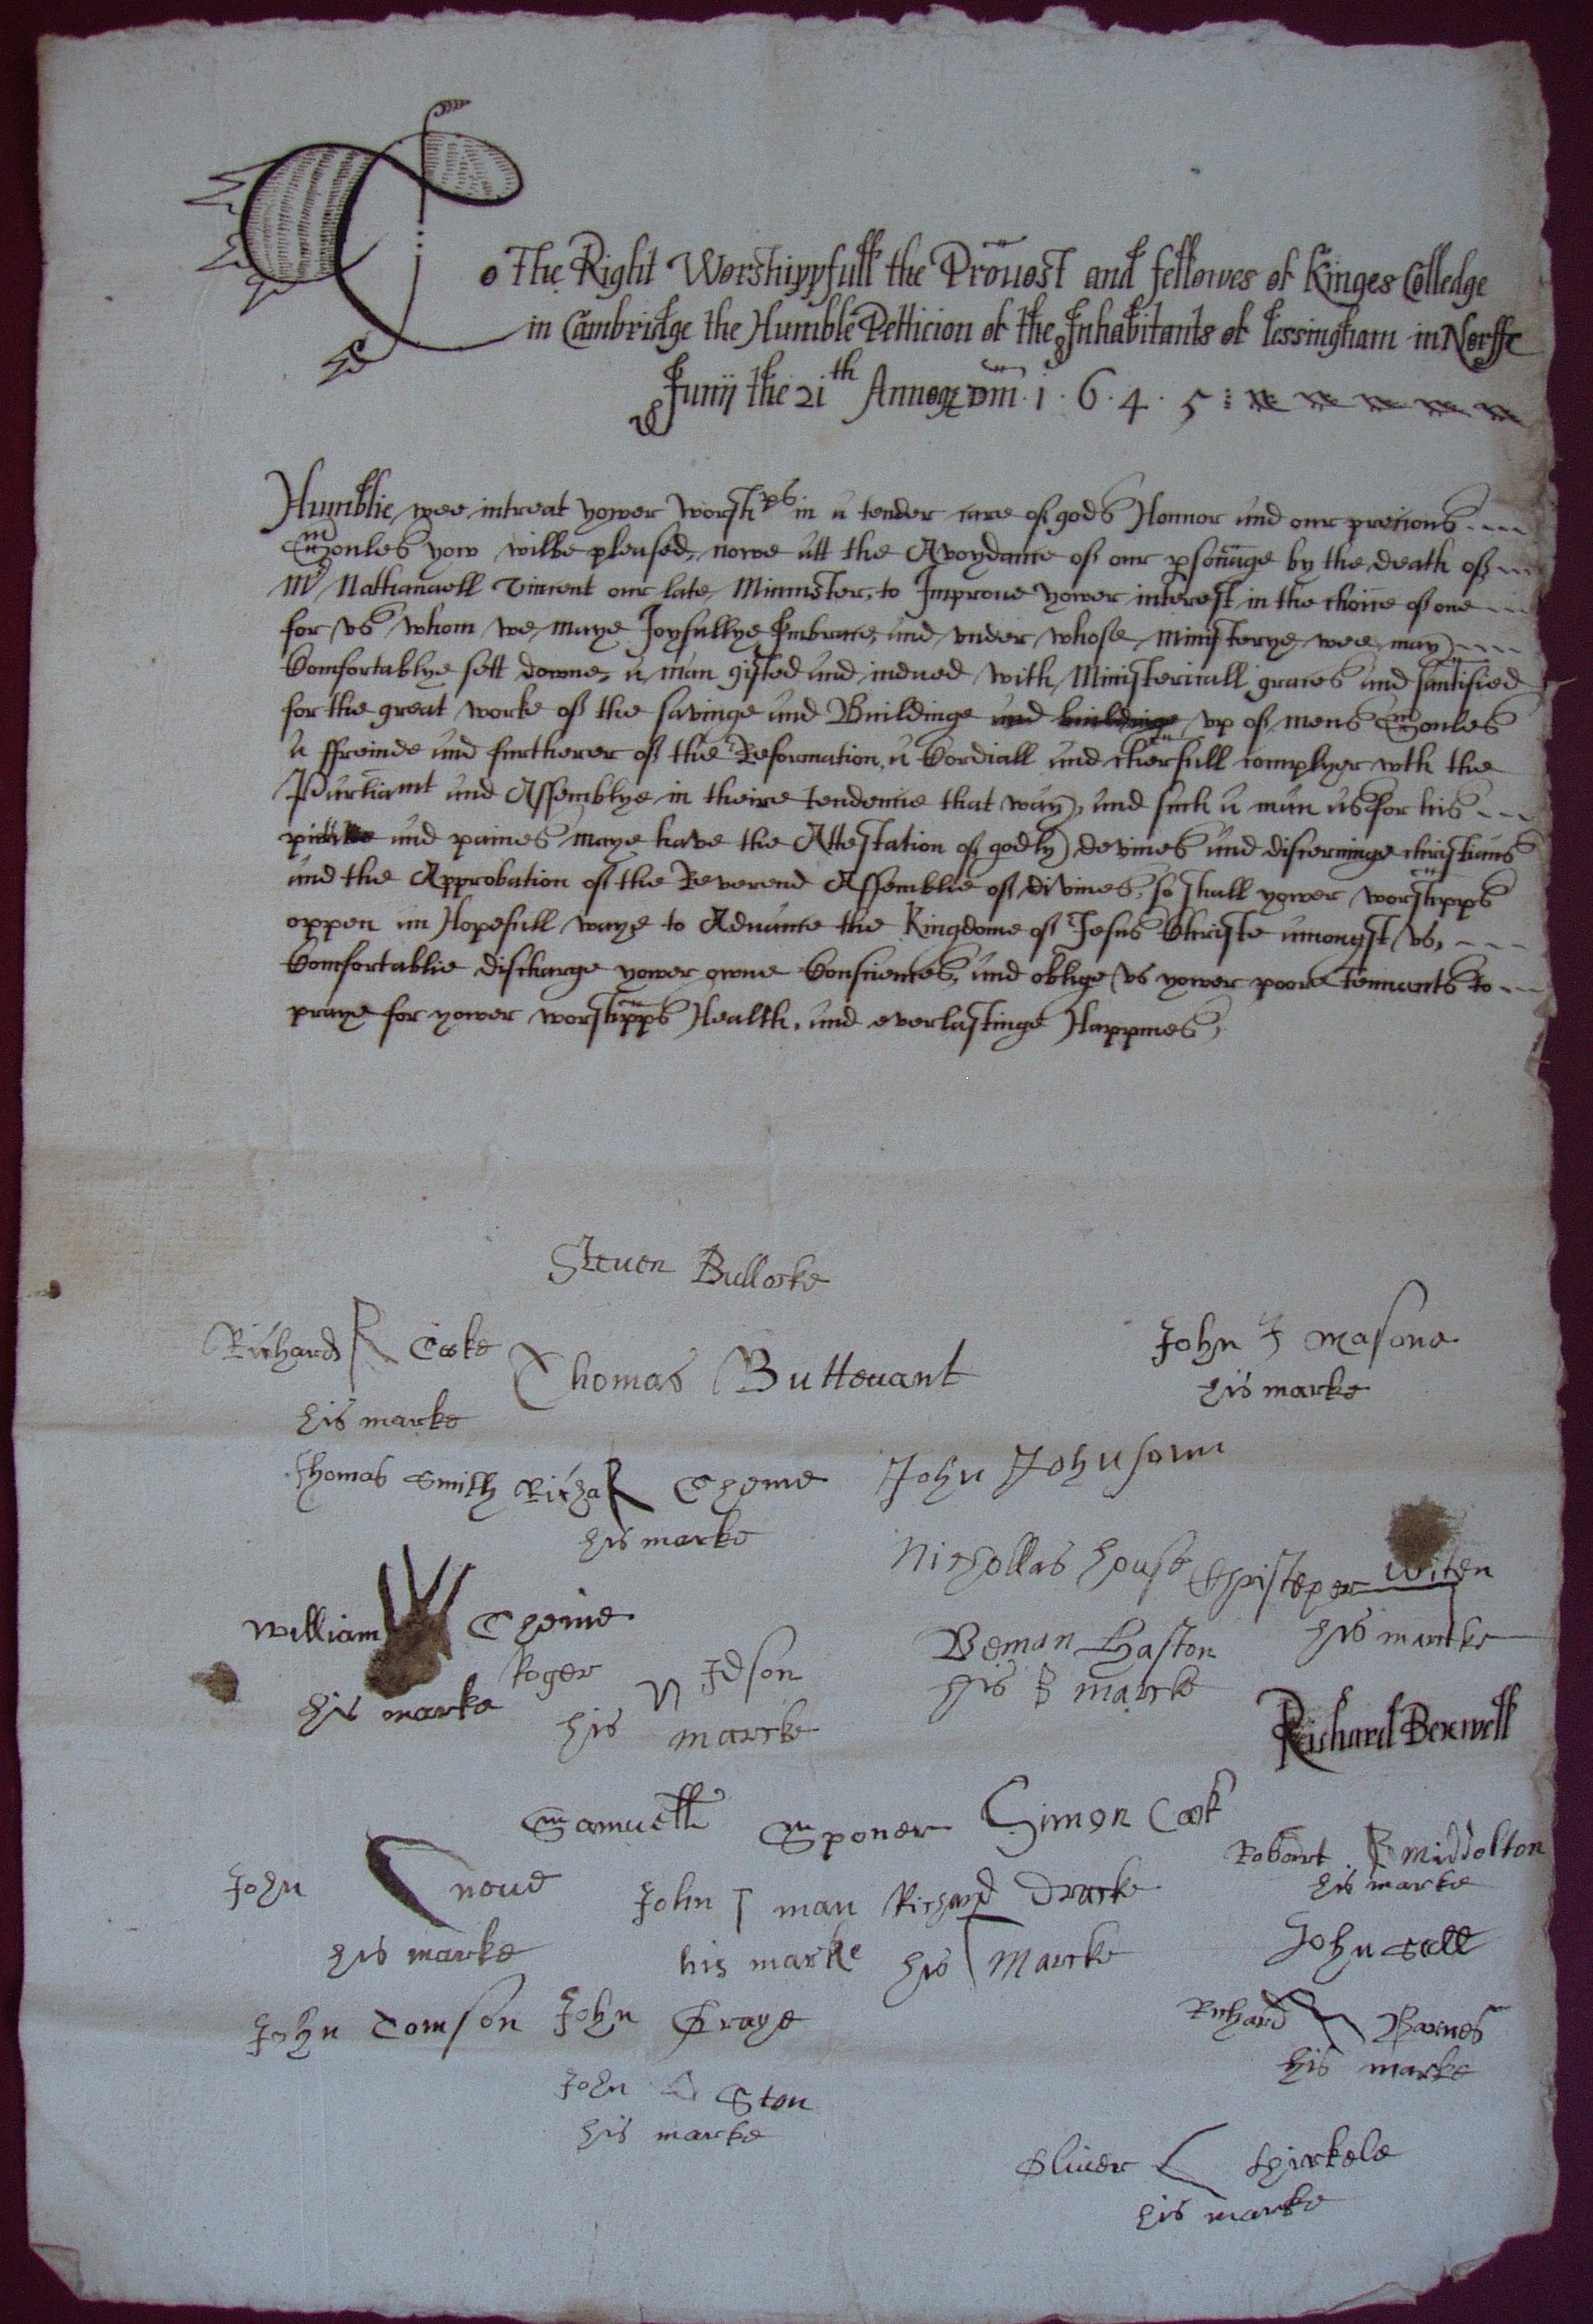 To The Right Worshippfull the Provost and fellowes of Kinges Colledge
in Cambridge the Humble Petticion of the Inhabitants of Lessingham in Norff
Junij the 21th Annoqz Dm. 1. 6. 4. 5:
Humblie wee intreat yower worshps in a tender care of gods Honnor and our precious
Soules yow wilbe pleased, nowe att the Avoydance of our psonage by the death of
Mr Nathanaell Vincent our late Minnister, to Improve yower interest in the choice of one
for vs whom we maye Joyfullye Embrace, and vnder whose Ministerye wee may
Comfortablye sett downe, a man gifted and indued with Ministeriall graces and santified
for the great worke of the savinge and Buildinge and buildinge vp of mens Soules
a ffreinde and furtherer of the Reformation, a Cordiall and cherfull complyer wth the
Parliamt and Assemblye in theire tendencie that way, and such a man as for his
and paines maye have the Attestation of godly devines and discerninge christians
and the Approbation of the Reverend Assemblie of divines, so shall yower worshipps
oppen an Hopefull waye to Advance the Kingdome of Jesus Christe amongst vs,
Comfortablie discharge yower owne Consciences, and oblige vs yower poore Tennants to
praye for yower worshipps Health, and everlastinge Happines,
Steven Bullocke
Richard R Cooke
his marke
Thomas Buttevant
John J masone
his marke
Thomas Smith
Richa R Cheme
his marke
John Johnsonn
Nichollas house
Christeper Witen
his marke
William Cheme
his marke
Roger N Idson
his marcke
Beman Haston
his B marcke
Richard Bexwell
Samuell Sponer
Simon Cook
Robart R Middolton
his marke
John noue
his marke
John I man
his marke
Richard Dracke
his Marcke
John Sell
John Tomson
John Graye
Richard R Barnes
his marke
John Ston
his marcke
Oliver Thirkele
his marke